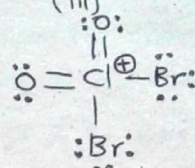 (iii)
:O:
O = Cl ⊕ - Br:
:Br: